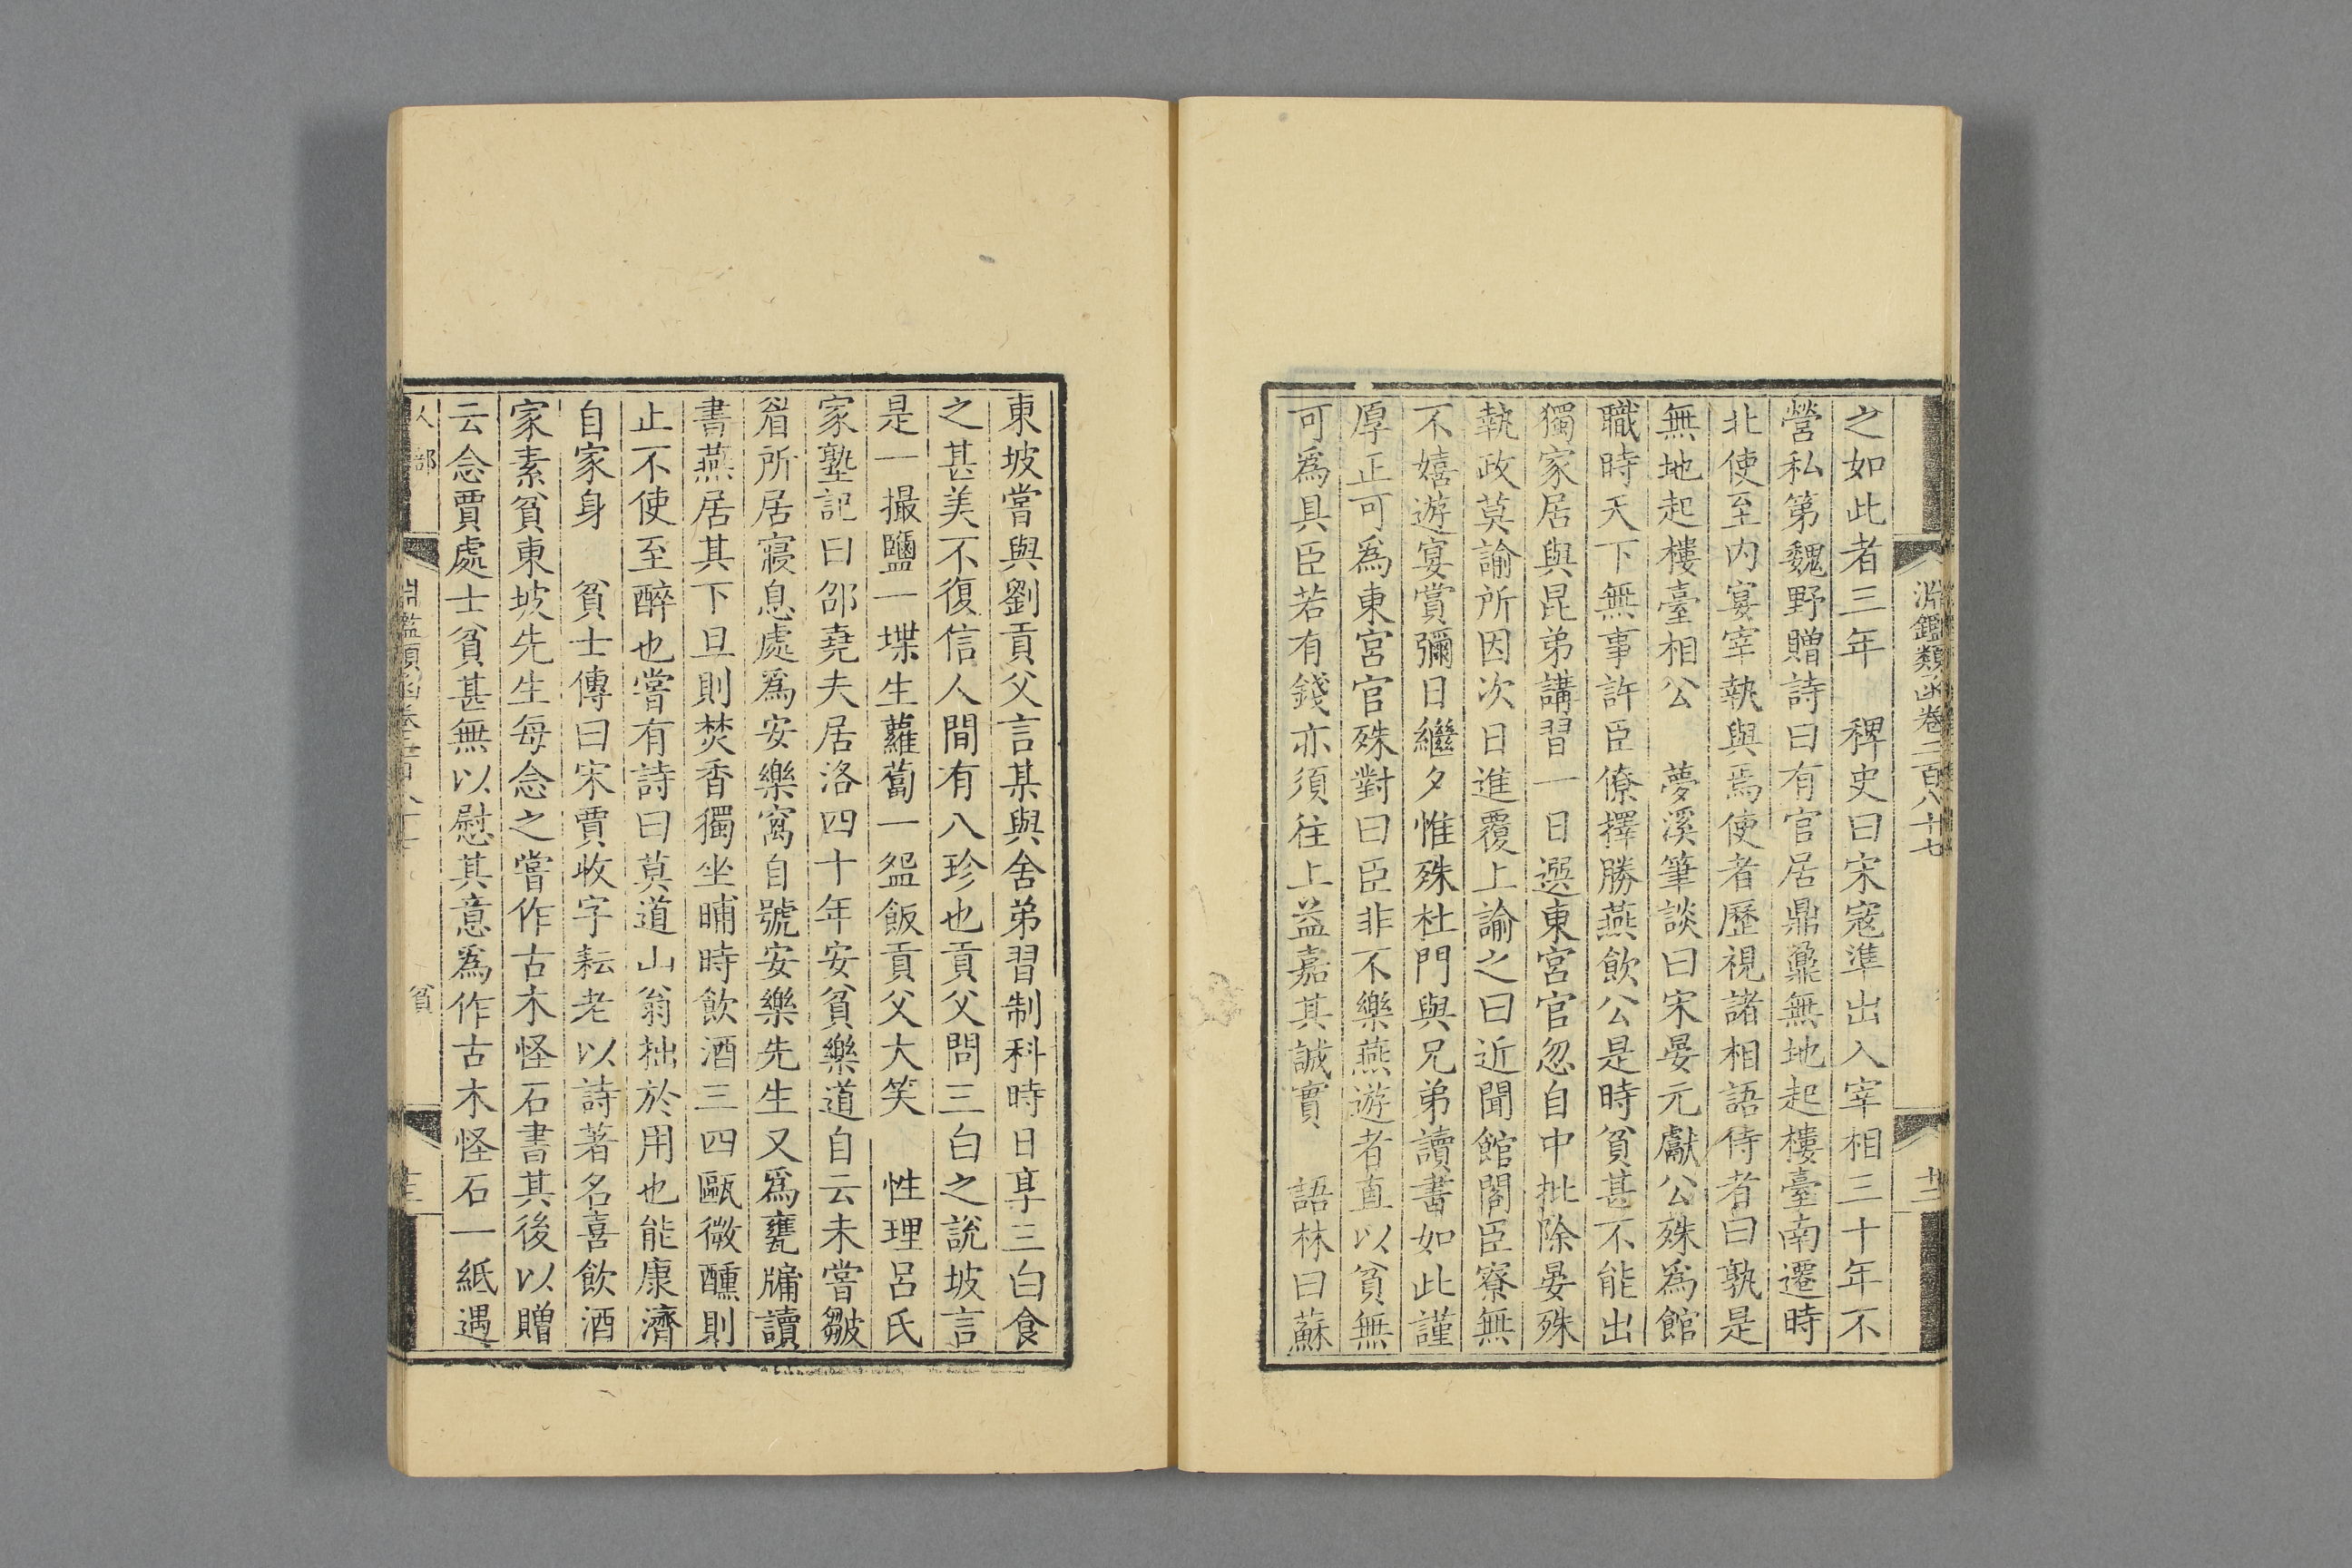 淵鑑類函卷二百八十七
十二
之如此者三年　稗史曰宋寇準出入宰相三十年不
營私第魏野贈詩曰有官居鼎鼐無地起樓臺南遷時
北使至内宴宰執與焉使者歷視諸相語侍者曰孰是
無地起樓臺相公　夢溪筆談曰宋晏元獻公殊爲館
職時天下無事許臣僚擇勝燕飲公是時貧甚不能出
獨家居與昆弟講習一日選東宮官忽自中批除晏殊
執政莫諭所因次日進覆上諭之曰近聞館閣臣寮無
不嬉遊宴賞彌日繼夕惟殊杜門與兄弟讀書如此謹
厚正可爲東宮官殊對曰臣非不樂燕遊者直以貧無
可爲具臣若有錢亦須往上益嘉其誠實　語林曰蘇
東坡嘗與劉貢父言某與舍弟習制科時日享三白食
之甚美不復信人間有八珍也貢父問三白之說坡言
是一撮鹽一堞生蘿蔔一盌飯貢父大笑　性理呂氏
家塾記曰邵堯夫居洛四十年安貧樂道自云未嘗皺
眉所居寢息處爲安樂窩自號安樂先生又爲甕牖讀
書燕居其下旦則焚香獨坐晡時飲酒三四甌微醺則
止不使至醉也嘗有詩曰莫道山翁拙於用也能康濟
自家身　貧士傳曰宋賈收字耘老以詩著名喜飲酒
家素貧東坡先生每念之嘗作古木怪石書其後以贈
云念賈處士貧甚無以慰其意爲作古木怪石一紙遇
人部
淵鑑類函卷二百八十七
貧
十三